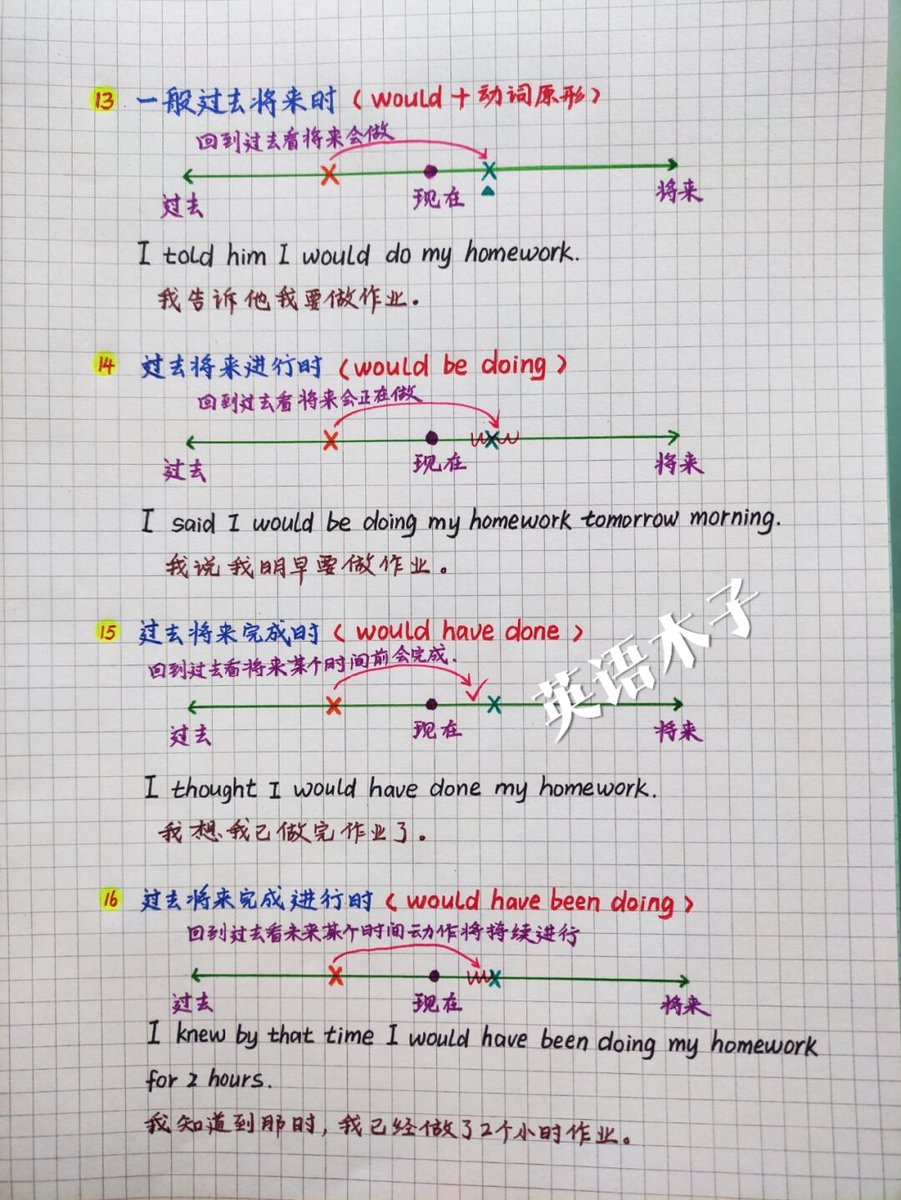 13 一般过去将来时(would + 动词原形)
回到过去看将来会做
过去 现在 将来
I told him I would do my homework.
我告诉他我要做作业。
14 过去将来进行时(would be doing)
回到过去看将来会正在做
过去 现在 将来
I said I would be doing my homework tomorrow morning.
我说我明早要做作业。
15 过去将来完成时(would have done)
回到过去看将来某个时间前会完成.
过去 现在 将来
英语木子
I thought I would have done my homework.
我想我已做完作业了。
16 过去将来完成进行时(would have been doing)
回到过去看未来某个时间动作将持续进行
过去 现在 将来
I knew by that time I would have been doing my homework
for 2 hours.
我知道到那时,我已经做了2个小时作业。